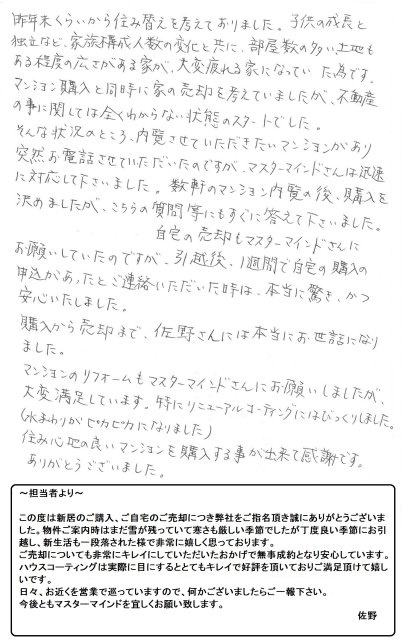 昨年末くらいから住み替えを考えておりました。子供の成長と
独立など、家族構成人数の変化と共に、部屋数の多い土地も
ある程度の広さがある家が、大変疲れる家になっていた為です。
マンション購入と同時に家の売却を考えていましたが、不動産
の事に関しては全くわからない状態のスタートでした。
そんな状況のところ、内覧させていただきたいマンションがあり
突然お電話させていただいたのですが、マスターマインドさんは迅速
に対応して下さいました。数軒のマンション内覧の後、購入を
決めましたが、こちらの質問等にもすぐに答えて下さいました。
自宅の売却もマスターマインドさんに
お願いしていたのですが、引越後、1週間で自宅の購入の
申込があったとご連絡いただいた時は、本当に驚き、かつ
安心いたしました。
購入から売却まで、佐野さんには本当にお世話になり
ました。
マンションのリフォームもマスターマインドさんにお願いしましたが、
大変満足しています。特にリニューアルコーティングにはびっくりしました。
(水まわりがピカピカになりました)
住み心地の良いマンションを購入する事が出来て感謝です。
ありがとうございました。
～担当者より～
この度は新居のご購入、ご自宅のご売却につき弊社をご指名頂き誠にありがとうございま
した。物件ご案内時はまだ雪が残っていて寒さも厳しい季節でしたが丁度良い季節にお引
越し、新生活も一段落された様で非常に嬉しく思っております。
ご売却についても非常にキレイにしていただいたおかげで無事成約となり安心しています。
ハウスコーティングは実際に目にするととてもキレイで好評を頂いておりご満足頂けて嬉し
いです。
日々、お近くを営業で巡っていますので、何かございましたらご一報下さい。
今後ともマスターマインドを宜しくお願い致します。
佐野